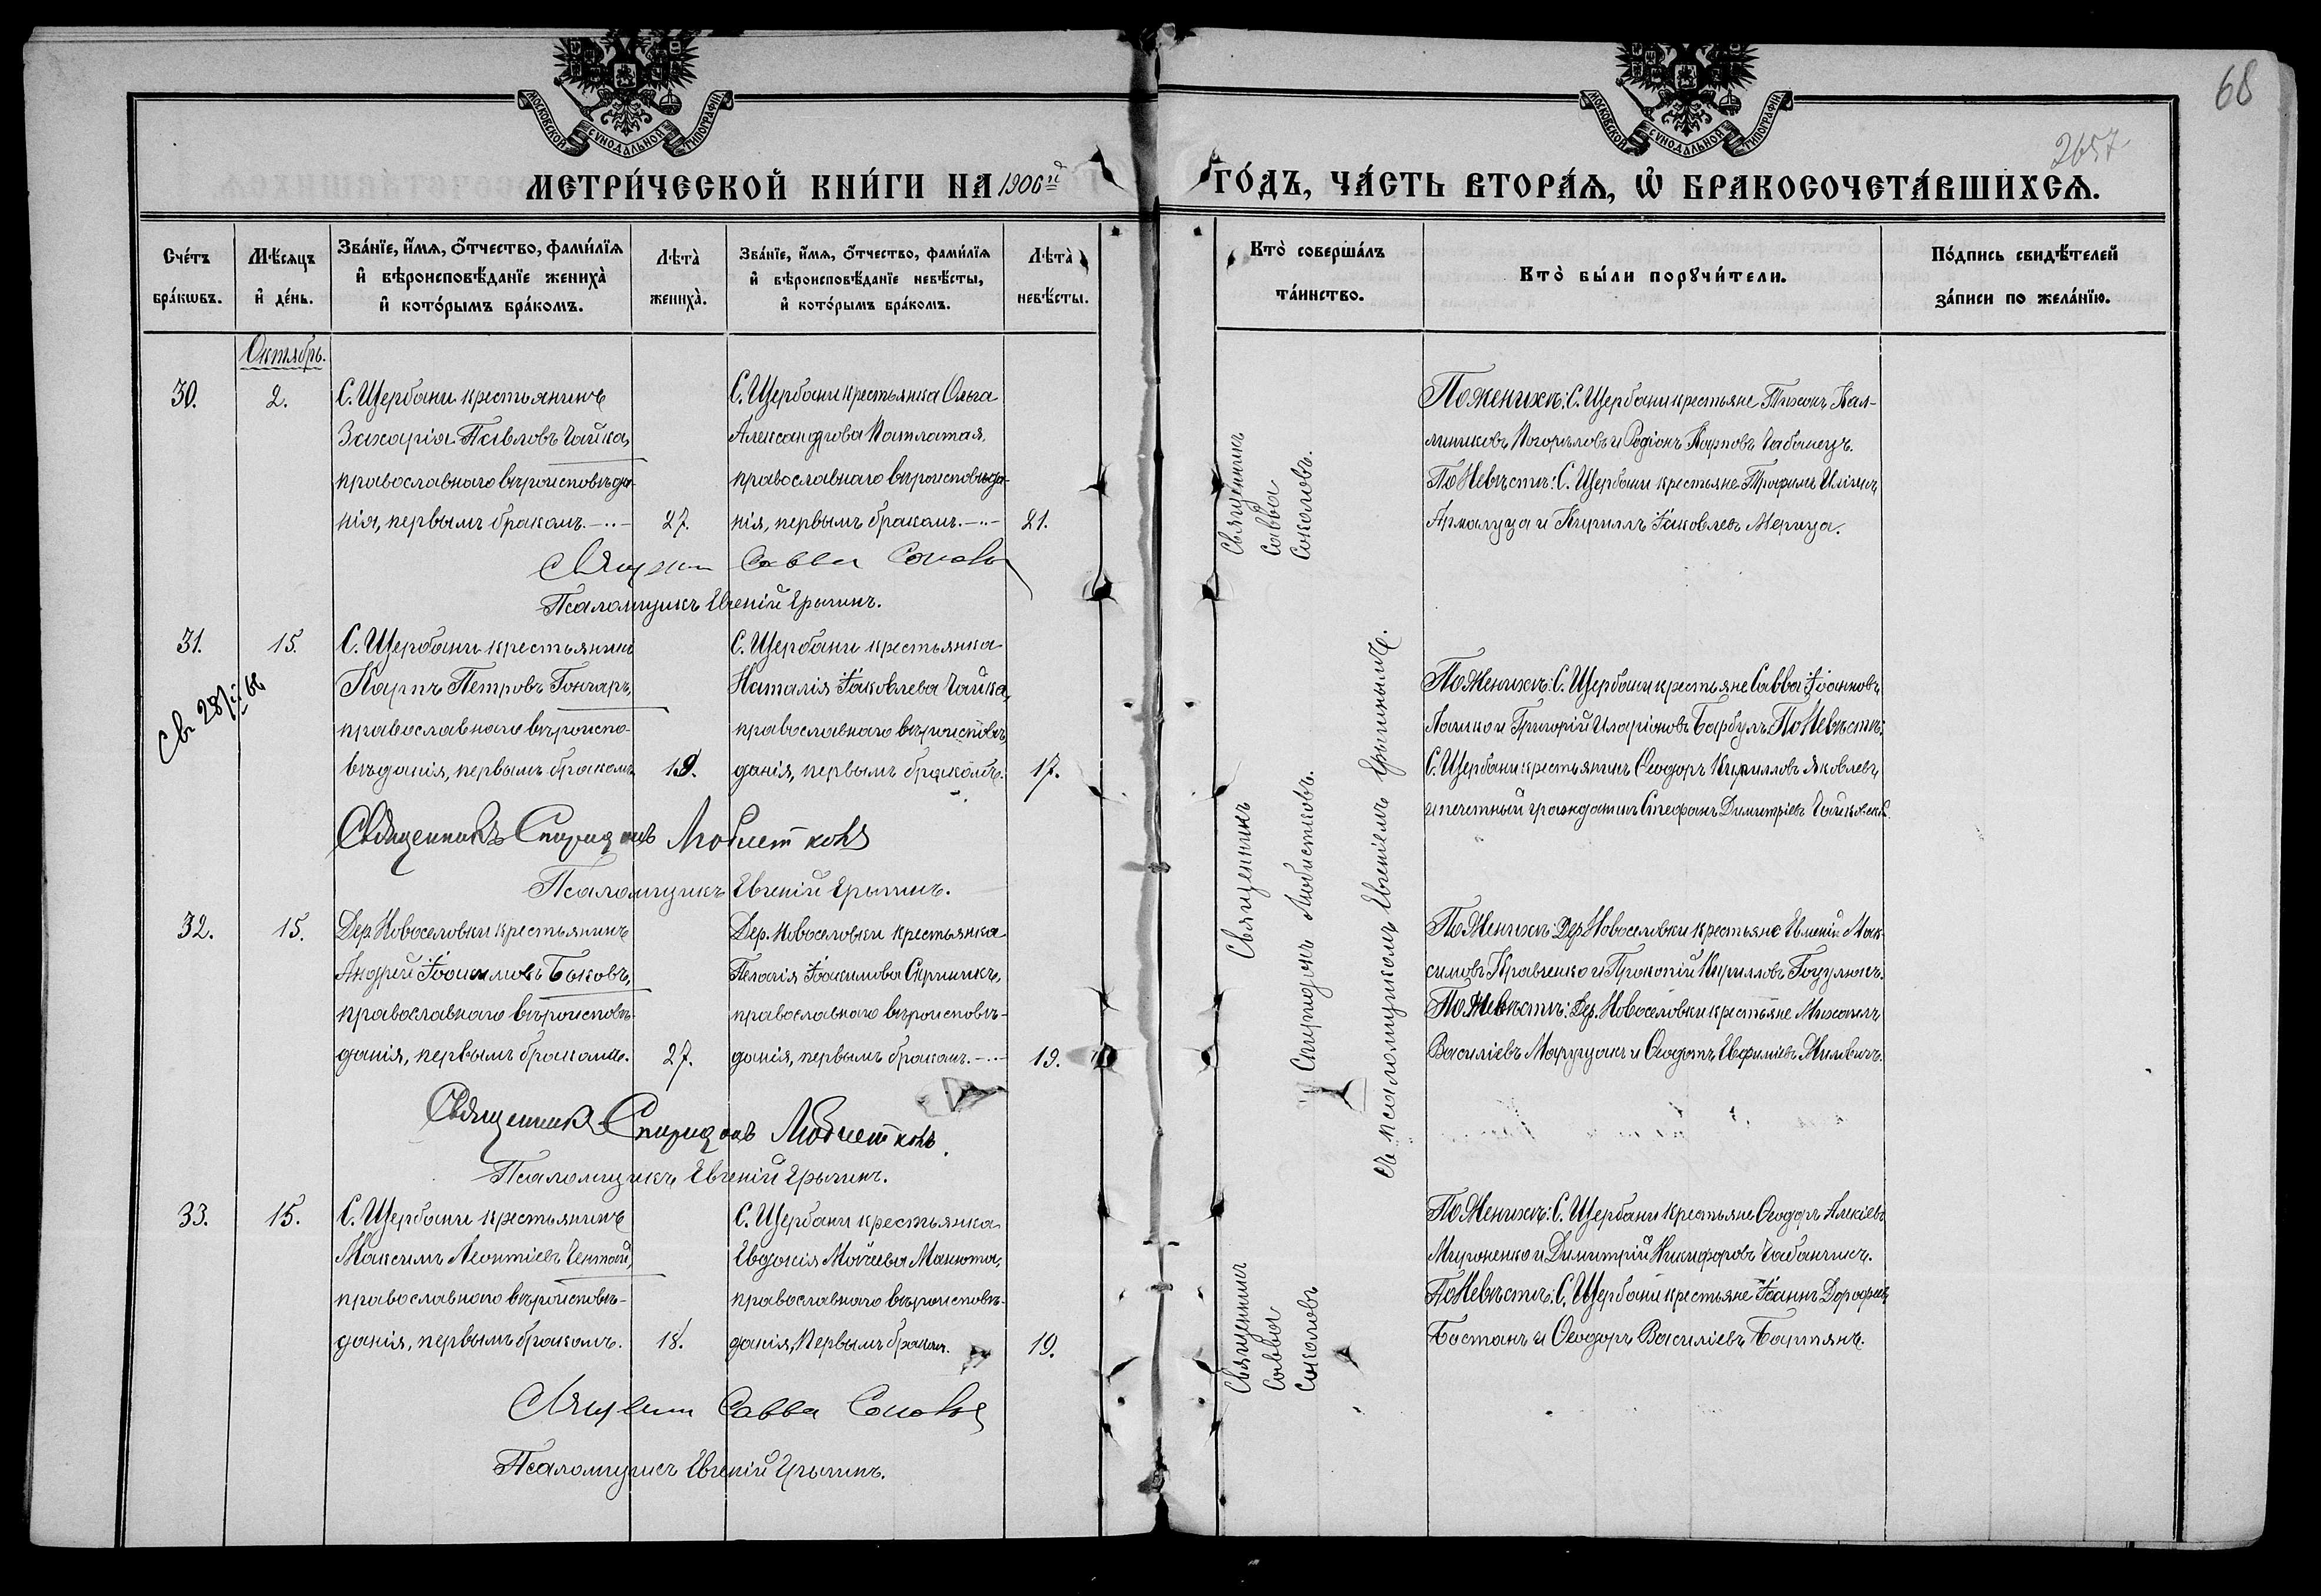 68
2657
МОСКОВСКОЙ СѴНОДАЛЬНОЙ ТИПОГРАФІИ
МОСКОВСКОЙ СѴНОДАЛЬНОЙ ТИПОГРАФІИ
МЕТРИ́ЧЕСКОЙ КНИ́ГИ НА 1906й
ГО́ДЪ, ЧА́СТЬ ВТОРА́Ѧ, Ѽ БРАКОСОЧЕТА́ВШИХСѦ.
Сче́тъ бра́кѡвъ.
Мѣ́сяцъ и҆ де́нь.
Зва́нїе, и҆́мѧ, ѻ҆́тчество, фами́лїѧ
и҆ вѣроисповѣ́данїе жениха̀
и҆ кото́рымъ бра́комъ.
Лѣта̀ жениха̀.
Зва́нїе, и҆́мѧ, ѻ҆́тчество, фами́лїѧ
и҆ вѣроисповѣ́данїе невѣ́сты,
и҆ кото́рымъ бра́комъ.
Лѣта̀ невѣ́сты.
Кто̀ соверша́лъ
та́инство.
Кто̀ бы́ли порꙋчи́тели.
По́дпись свидѣ́телей
за́писи по жела́нїю.
Октябрь.
30.
2.
С. Щербани крестьянинъ
Захарія Павловъ Чайка,
православнаго вѣроисповѣда-
нія, первымъ бракомъ.
27.
С. Щербани крестьянка Ольга
Александрова Патлатая,
православнаго вѣроисповѣда-
нія, первымъ бракомъ.
21.
Священникъ Савва Соколовъ.
По женихѣ: С. Щербани крестьяне Тихонъ Кал-
линиковъ Погорѣловъ и Родіонъ Карповъ Чабанецъ.
По Невѣстѣ: С. Щербани крестьяне Трофимъ Иліинъ
и Кириллъ Іаковлевъ Мерица.
Савва
Псаломщикъ Евгеній
31.
15.
С. Щербани крестьянинъ
Карпъ Петровъ Гончаръ,
православнаго вѣроиспо-
вѣданія, первымъ бракомъ
19.
С. Щербани крестьянка
Наталія Іаковлева Чайка,
православнаго вѣроисповѣ-
данія, первымъ бракомъ.
17.
Священникъ Спиридонъ Любистковъ.
съ псаломщикомъ Евгеніемъ
По Женихѣ: С. Щербани крестьяне Савва Іоанновъ
и Григорій Иларіоновъ Барбулъ. По Невѣстѣ:
С. Щербани крестьянинъ Ѳеодоръ Кирилловъ Яковлевъ
и почетный гражданинъ Стефанъ Димитріевъ
Священникъ Спиридонъ Любистковъ
Псаломщикъ Евгеній
32.
15.
Дер. Новоселовки крестьянинъ
Андрей Іоакимовъ Боковъ,
православнаго вѣроисповѣ-
данія, первымъ бракомъ.
27.
Дер. Новоселовки крестьянка
Пелагія Іоакимова
православнаго вѣроисповѣ-
данія, первымъ бракомъ.
19.
По Женихѣ: Дер. Новоселовки крестьяне Евменій Мак-
симовъ Кравченко и Прокопій Кирилловъ Гоцулякъ.
По Невѣстѣ: Дер. Новоселовки крестьяне Михаилъ
Василіевъ и Ѳеодотъ Евфиміевъ
Священникъ Спиридонъ Любистковъ.
Псаломщикъ Евгеній
33.
15.
С. Щербани крестьянинъ
Максимъ Леонтіевъ
православнаго вѣроисповѣ-
данія, первымъ бракомъ.
18.
С. Щербани крестьянка
Евдокія Мойсеева Манюта,
православнаго вѣроисповѣ-
данія, Первымъ бракомъ.
19.
Священникъ Савва Соколовъ
По Женихѣ: С. Щербани крестьяне Ѳеодоръ Алексіевъ
Мироненко и Димитрій Никифоровъ
По Невѣстѣ: С. Щербани крестьяне Іоаннъ Дорофеевъ
Бостанъ и Ѳеодоръ Василіевъ
Савва
Псаломщикъ Евгеній